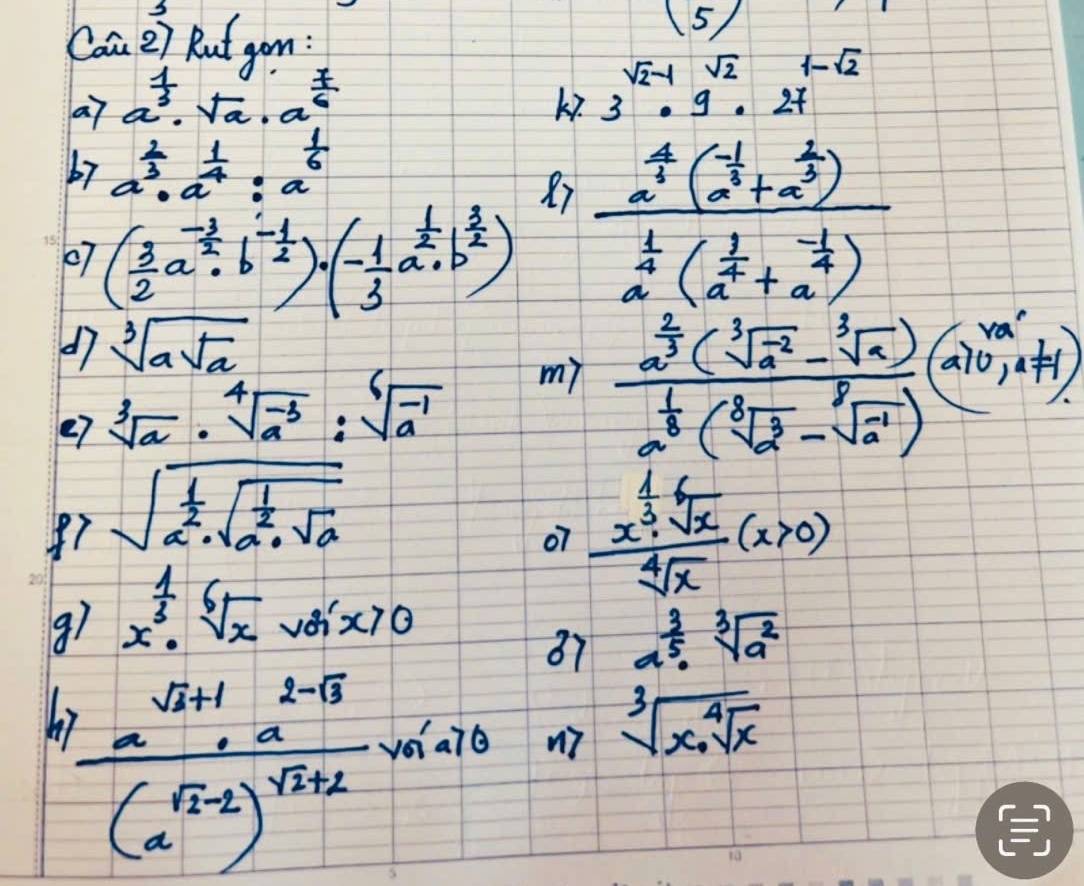 5)
Câu 2) Rút gọn:
a) a^{\frac{1}{3}} . √a . a^{\frac{7}{6}}
b) a^{\frac{2}{3}} . a^{\frac{1}{4}} : a^{\frac{1}{6}}
c) (\frac{3}{2} a^{-\frac{3}{2}} . b^{-\frac{1}{2}}) . (-\frac{1}{3} a^{\frac{1}{2}} . b^{\frac{3}{2}})
d) \sqrt[3]{a\sqrt{a}}
e) \sqrt[3]{a} . \sqrt[4]{a^{-3}} : \sqrt[6]{a^{-1}}
f) \sqrt{a^{\frac{1}{2}} . \sqrt{a^{\frac{1}{2}} . \sqrt{a}}}
g) x^{\frac{1}{3}} . \sqrt[6]{x} với x>0
h) \frac{a^{√3+1} . a^{2-√3}}{(a^{√2-2})^{√2+2}} với a>0
k) 3^{√2-1} . 9^{√2} . 27^{1-√2}
l) \frac{a^{\frac{4}{3}} (a^{\frac{-1}{3}} + a^{\frac{2}{3}})}{a^{\frac{1}{4}} (a^{\frac{3}{4}} + a^{\frac{-1}{4}})}
m) \frac{a^{\frac{2}{3}} (\sqrt[3]{a^{-2}} - \sqrt[3]{a})}{a^{\frac{1}{8}} (\sqrt[8]{a^3} - \sqrt[8]{a^{-1}})} (a>0, và a≠1).
o) \frac{x^{\frac{1}{3}} . \sqrt[6]{x}}{\sqrt[4]{x}} (x>0)
ô) a^{\frac{3}{5}} . \sqrt[3]{a^2}
n) \sqrt[3]{x . \sqrt[4]{x}}
15
20
5
10